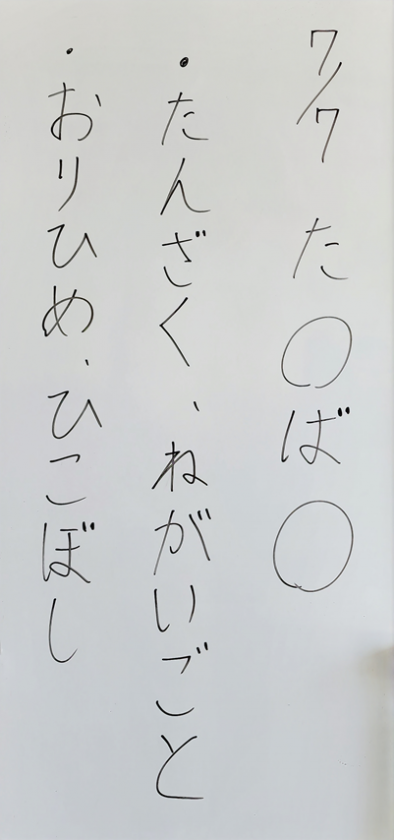 7/7 た〇ば〇
・たんざく、ねがいごと
・おりひめ、ひこぼし